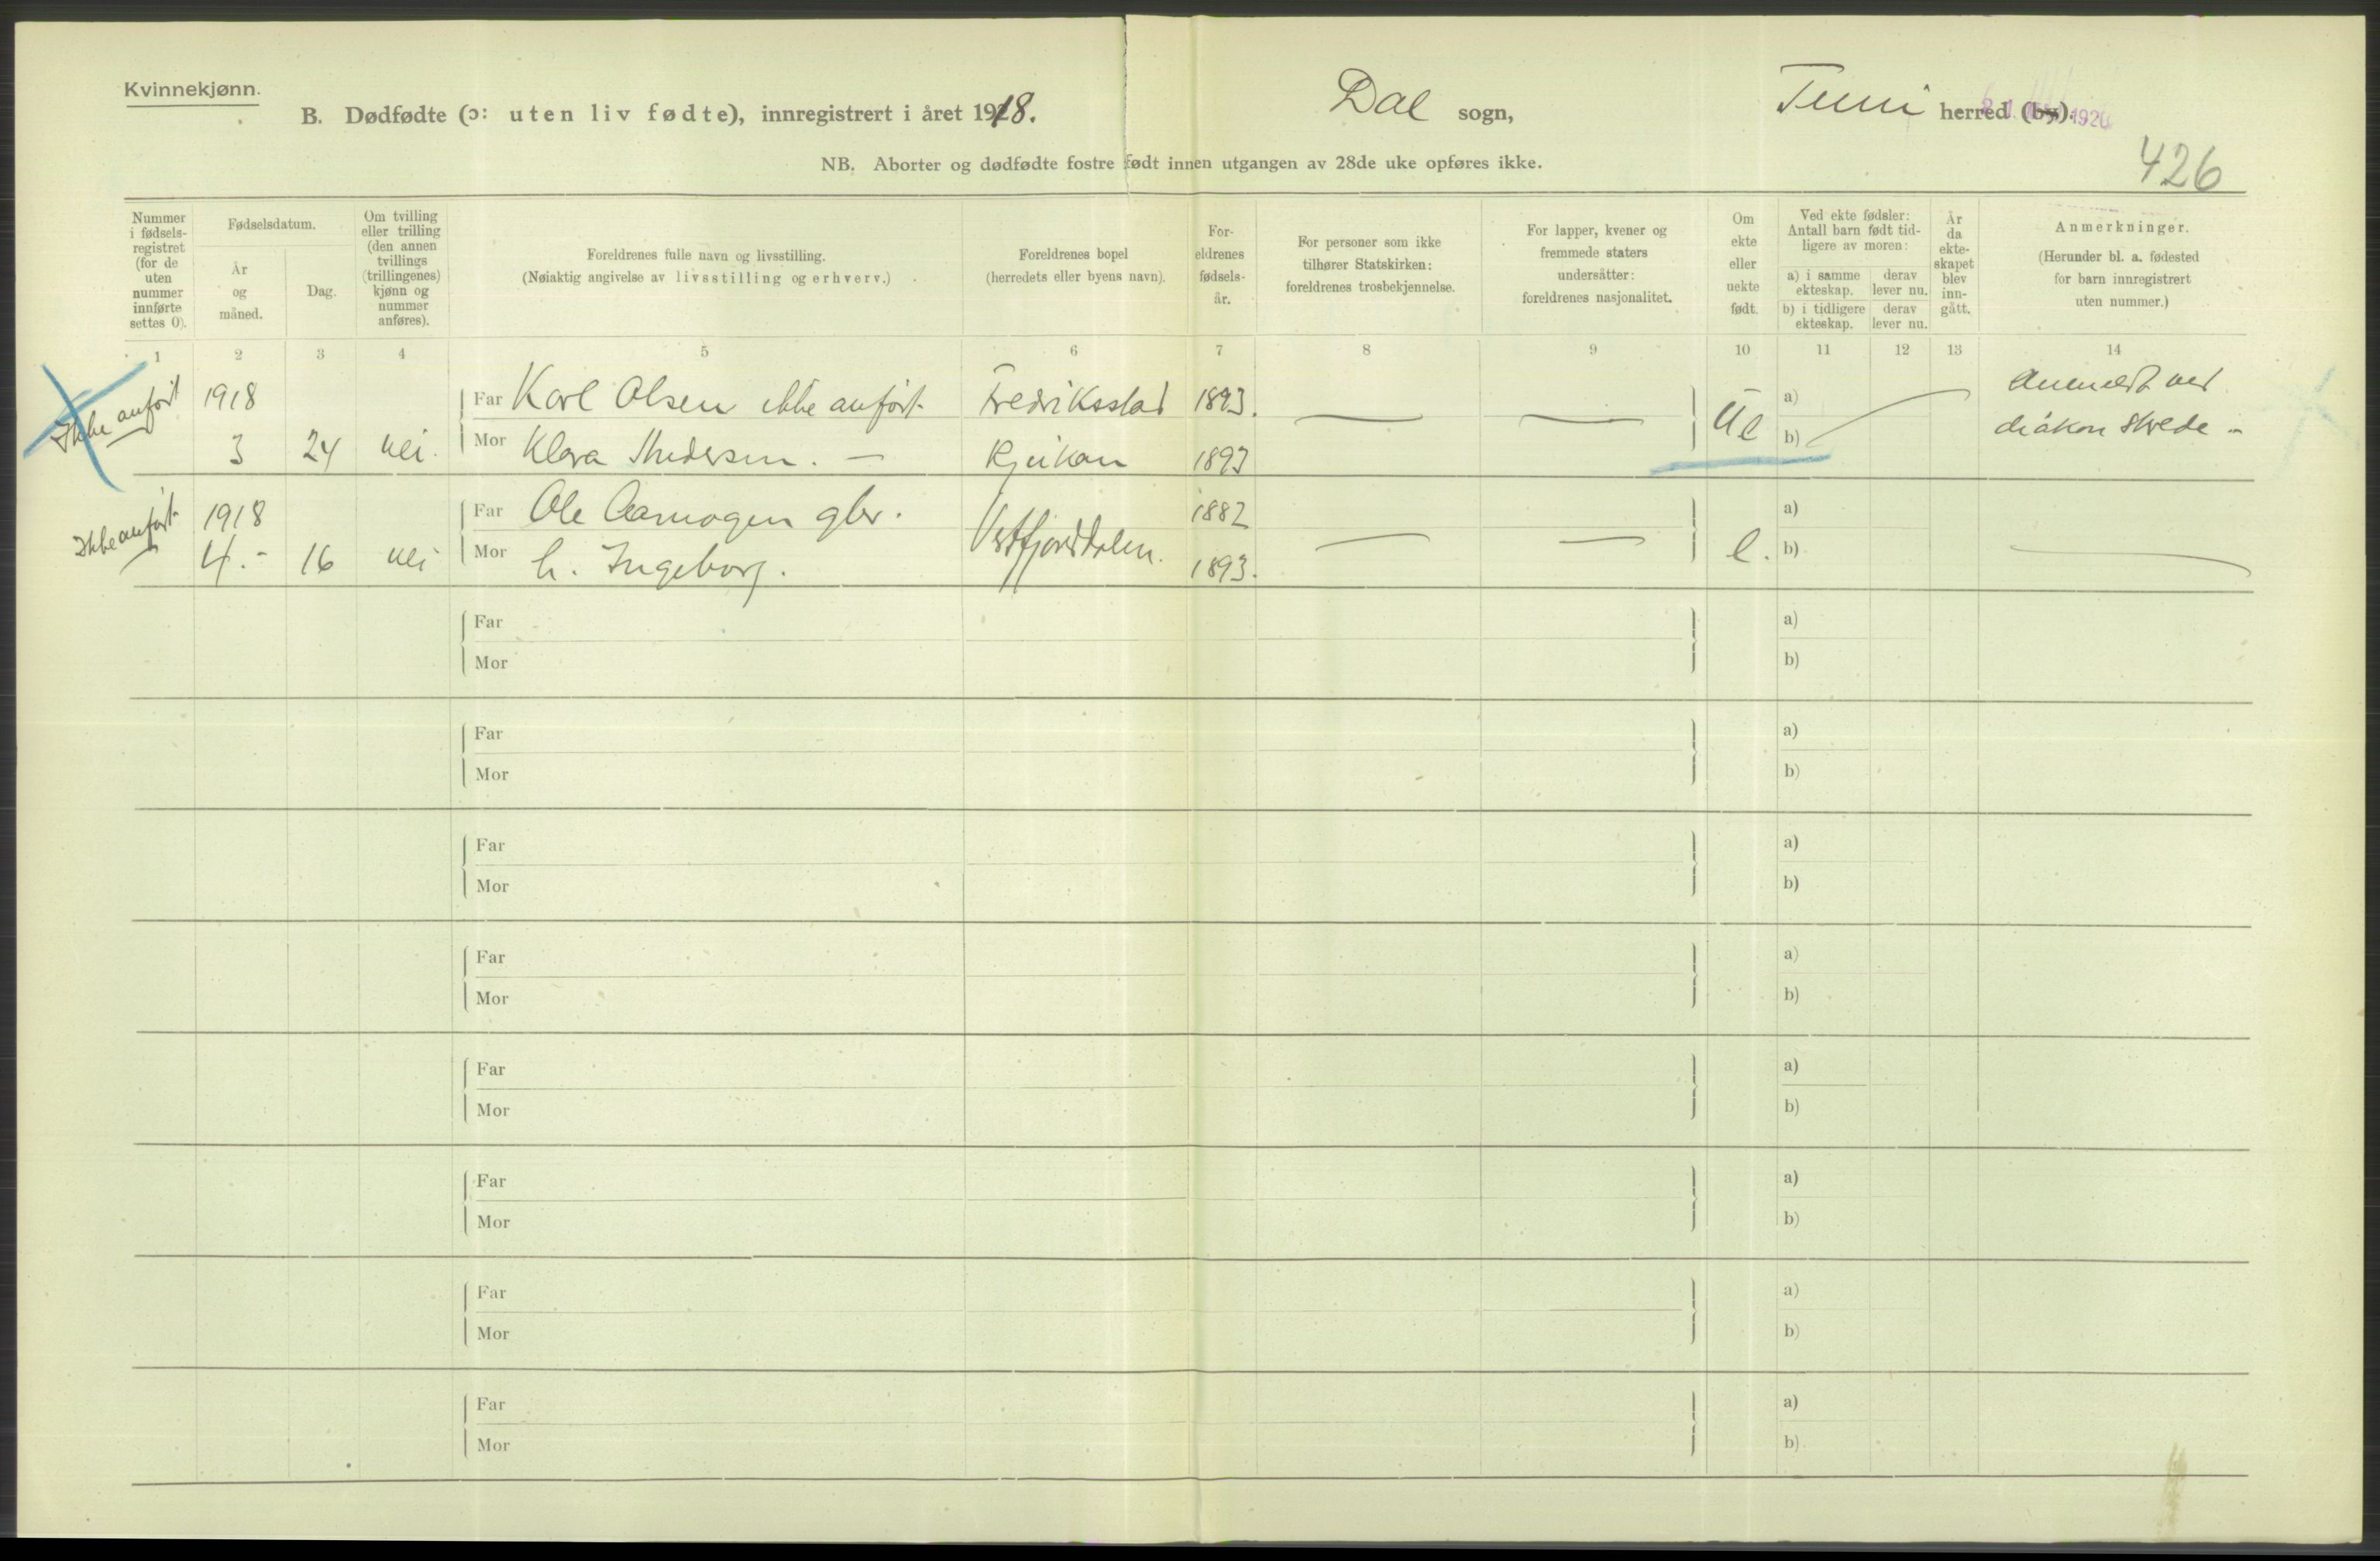 Kvinnekjønn.
B. Dødfødte (ɔ: uten liv fødte), innregistrert i året 1918.
Dal sogn,
herred (by).
1920
426
NB. Aborter og dødfødte fostre født innen utgangen av 28de uke opføres ikke.
Nummer
i fødsels-
registret
(for de
uten
nummer
innførte
settes 0).
Fødselsdatum.
År
og
måned.
Dag.
Om tvilling
eller trilling
(den annen
tvillings
(trillingenes)
kjønn og
nummer
anføres).
Foreldrenes fulle navn og livsstilling.
(Nøiaktig angivelse av livsstilling og erhverv.)
Foreldrenes bopel
(herredets eller byens navn).
For-
eldrenes
fødsels-
år.
For personer som ikke
tilhører Statskirken:
foreldrenes trosbekjennelse.
For lapper, kvener og
fremmede staters
undersåtter:
foreldrenes nasjonalitet.
Om
ekte
eller
uekte
født.
Ved ekte fødsler:
Antall barn født tid-
ligere av moren:
a) i samme
ekteskap.
derav
lever nu.
b) i tidligere
ekteskap.
derav
lever nu.
År
da
ekte-
skapet
blev
inn-
gått.
Anmerkninger.
(Herunder bl. a. fødested
for barn innregistrert
uten nummer.)
1 2 3 4 5 6 7 8 9 10 11 12 13 14
Ikke anført
1918
3 24 nei.
Far Karl Olsen ikke anført. Fredriksstad 1893.
Mor Klara — Rjukan 1893
Ue
a)
b)
Anmeldt ved
diakon Skrede -
Ikke anført
1918
4.- 16 nei
Far Ole gbr. 1882
Mor h. Ingeborg. Vestfjorddalen. 1893.
e.
a)
b)
Far
Mor
a)
b)
Far
Mor
a)
b)
Far
Mor
a)
b)
Far
Mor
a)
b)
Far
Mor
a)
b)
Far
Mor
a)
b)
Far
Mor
a)
b)
Far
Mor
a)
b)